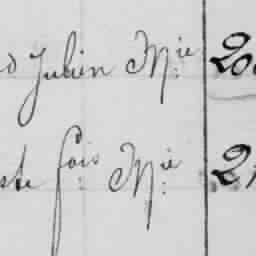 d Julien M.ie 20
ste fois M.ie 21